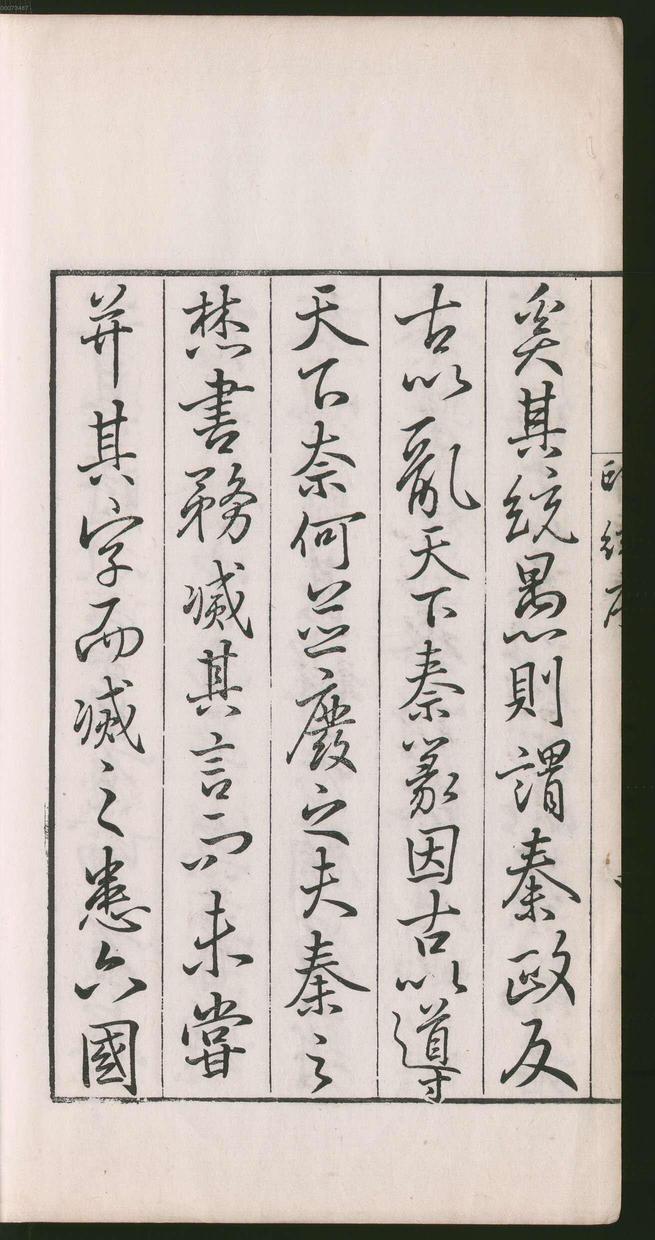 奚其統愚則謂秦政反
古以亂天下秦篆因古以導
天下奈何並廢之夫秦之
焚書務滅其言而未嘗
并其字而滅之悉六國
00073467